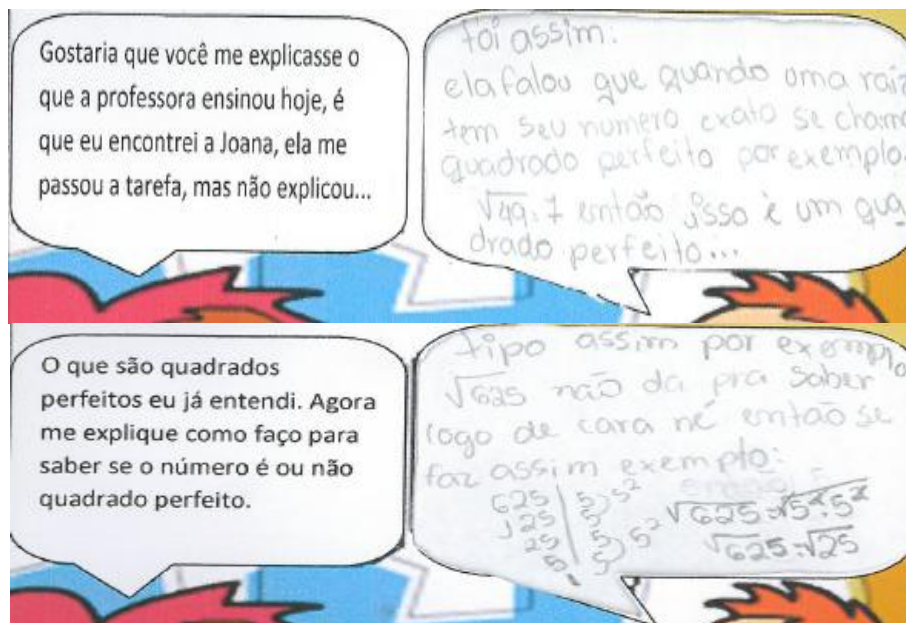 Gostaria que você me explicasse o
que a professora ensinou hoje, é
que eu encontrei a Joana, ela me
passou a tarefa, mas não explicou...
foi assim.
ela falou que quando uma raiz
tem seu numero exato se chama
quadrado perfeito por exemplo.
√49=7 então isso é um qua
drado perfeito...
O que são quadrados
perfeitos eu já entendi. Agora
me explique como faço para
saber se o número é ou não
quadrado perfeito.
tipo assim por exemplo
√625 não da pra saber
logo de cara né então se
faz assim exemplo:
625 | 5
125 | 5 5²
25 | 5
5 | 5 5²
√625=√5²·5²
√625=√25